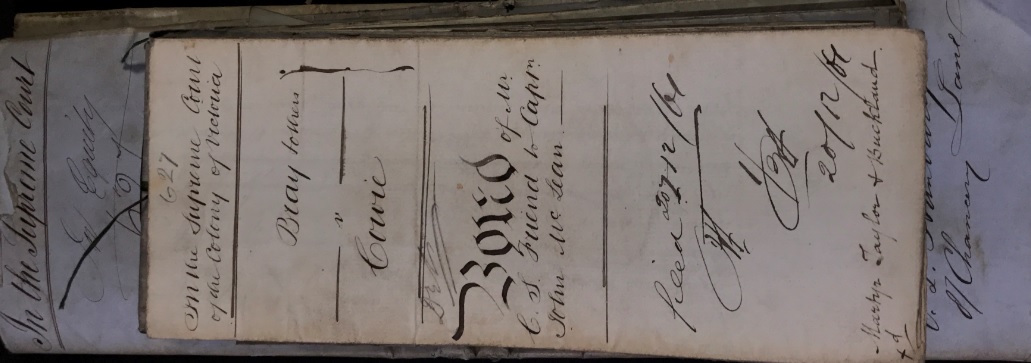 627
In the Supreme Court
of the Colony of Victoria
Bray & others
v
Cowie
Bond of Mr.
C. S. Friend to Captn.
John McLean
filed 20/12/61
20/12/61
Martyr Taylor & Buckland
In the Supreme Court
In Equity
of Chancery